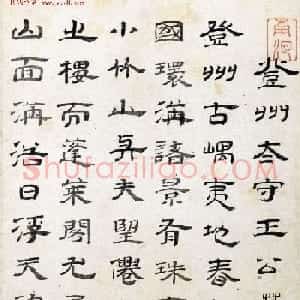 登州太守王公
登州古嵎夷地春
國環諸景有珠
小山夫望僊
之樓而蓬萊閣尤
山面浩日浮天
Shufaziliao.com